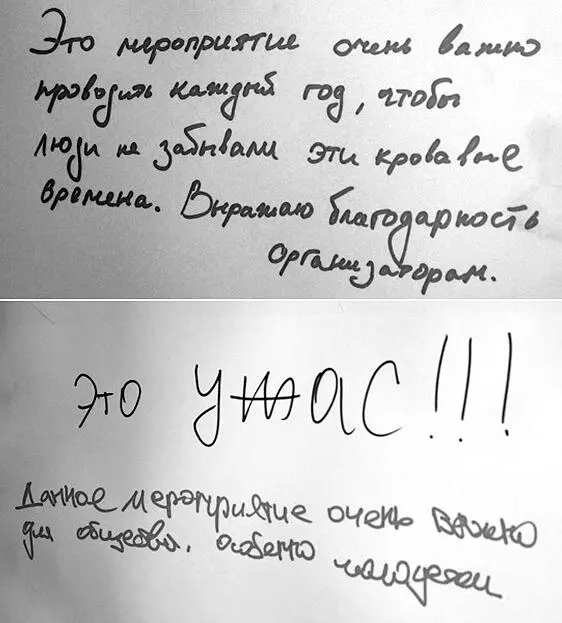 Это мероприятие очень важно
проводить каждый год, чтобы
люди не забывали эти кровавые
времена. Выражаю благодарность
организаторам.
это УЖАС!!!
Данное мероприятие очень важно
для общества, особенно молодежи